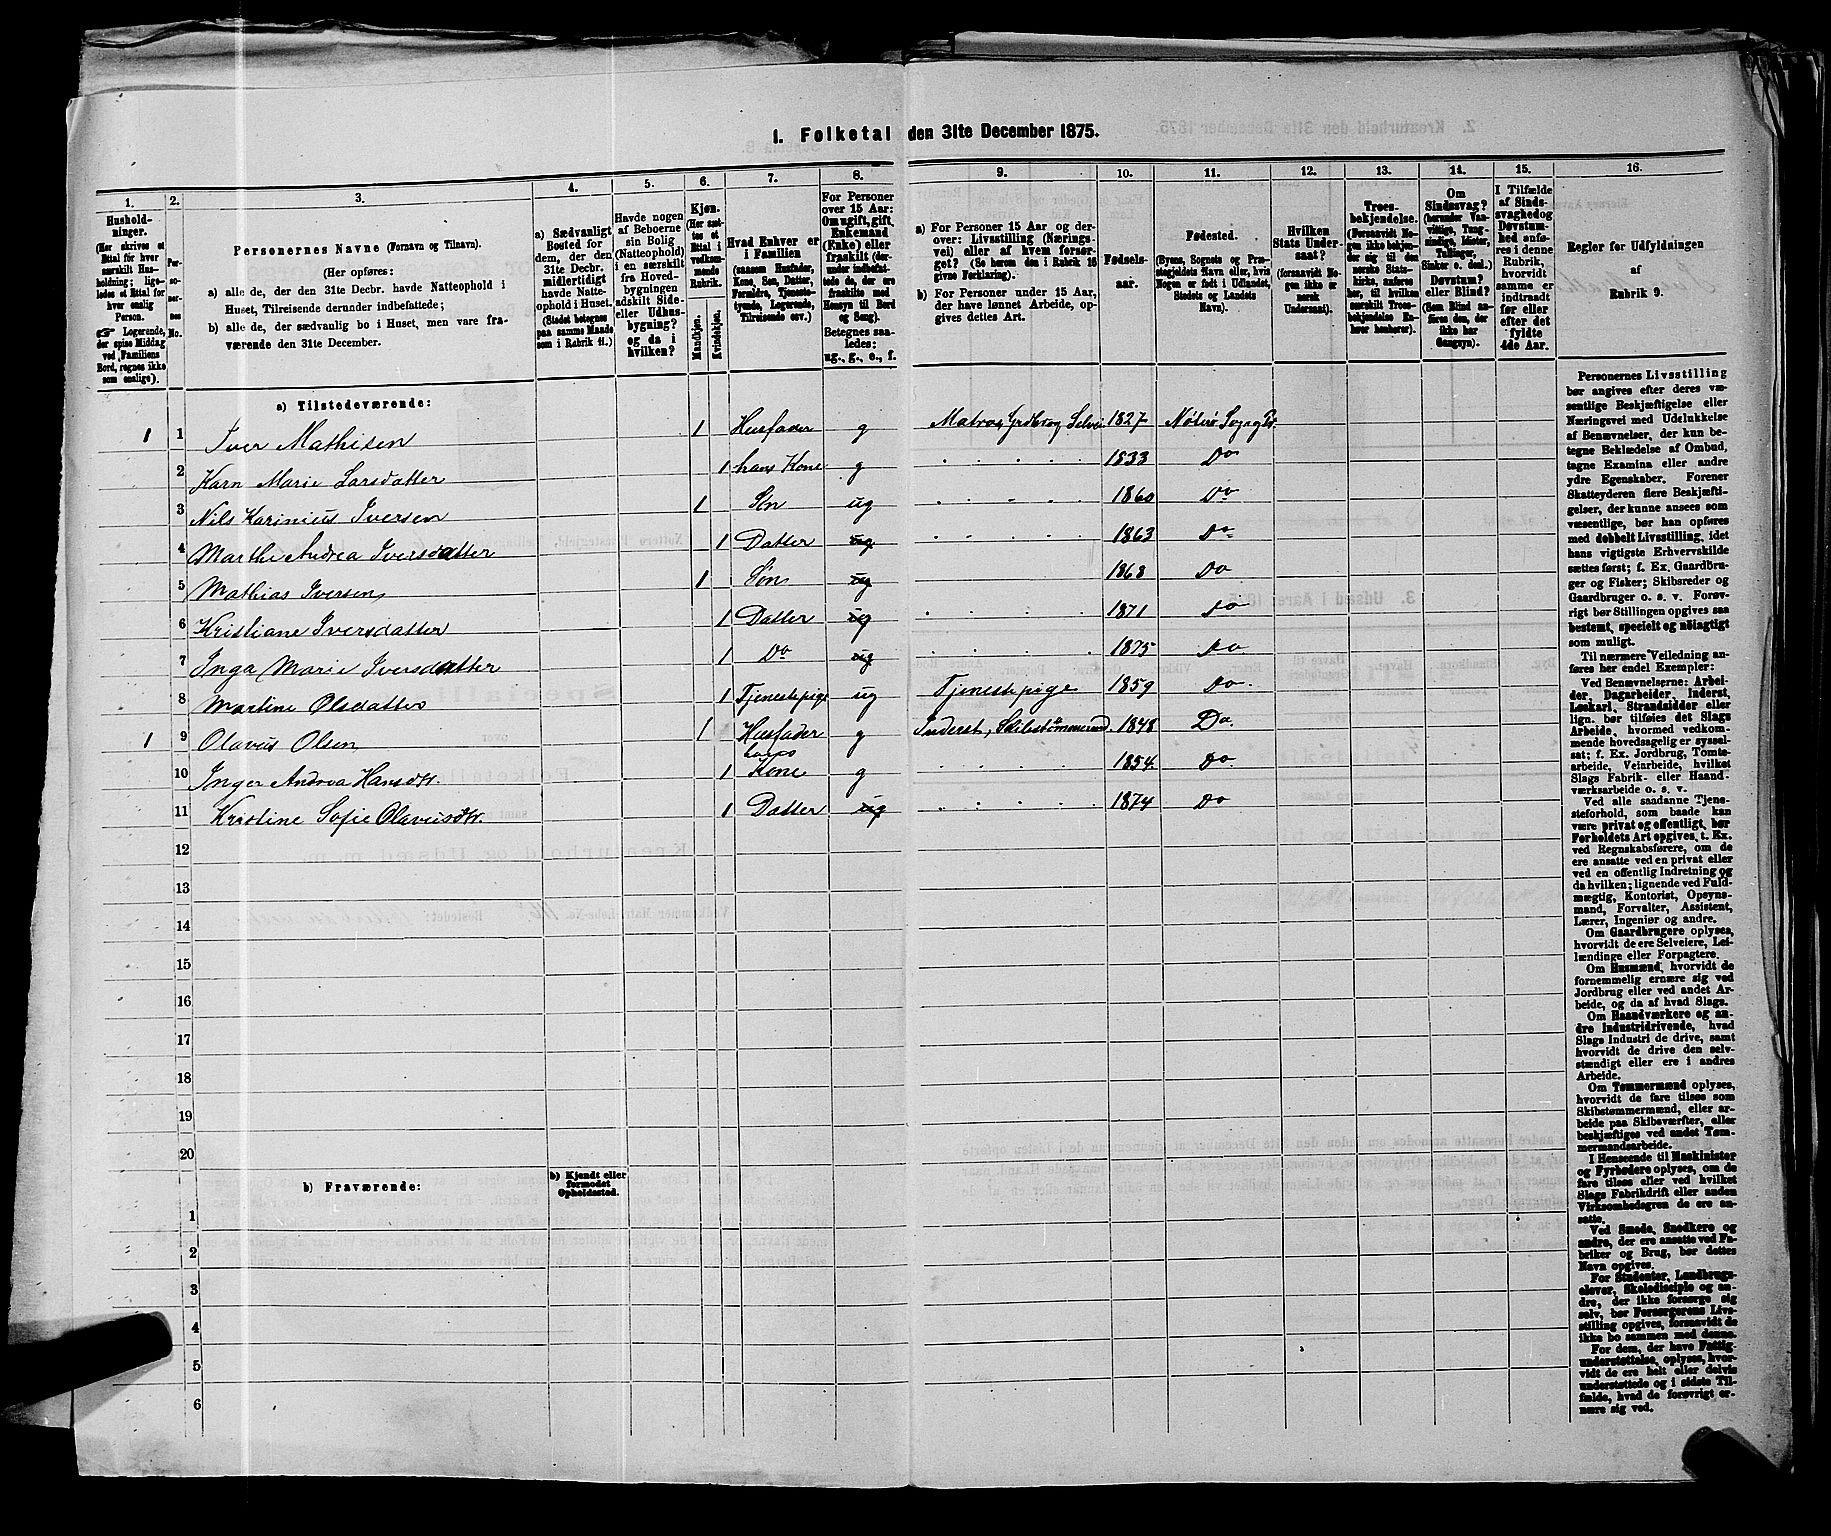 1. Folketal den 31te December 1875.
1. 2. 3. 4. 5. 6. 7. 8. 9. 10. 11. 12. 13. 14. 15. 16.
Hushold-
ninger.
(Her skrives et
Ettal for hver
særskilt Hus-
holdning; lige-
ledes et Ettal for
hver enslig
Person.
☞ Logerende,
der spise Middag
ved Familiens
Bord, regnes ikke
som enslige).
Per-
so-
ner-
nes
No.
Personernes Navne (Fornavn og Tilnavn).
(Her opføres:
a) alle de, der den 31te Decbr. havde Natteophold i
Huset, Tilreisende derunder indbefattede;
b) alle de, der sædvanlig bo i Huset, men vare fra-
værende den 31te December.
a) Sædvanligt
Bosted for
dem, der den
31te Decbr.
midlertidigt
havde Natte-
ophold i Huset.
(Stedet betegnes
paa samme Maade
som i Rubrik 11.)
Havde nogen
af Beboerne
sin Bolig
(Natteophold)
i en særskilt
fra Hoved-
bygningen
adskilt Side-
eller Udhus-
bygning?
og da i
hvilken?
Kjøn.
(Her sæt-
tes et
Ettal i
vedkom-
mende
Rubrik.
Mandkjøn.
Kvindekjøn.
Hvad Enhver er
i Familien
(saasom Husfader,
Kone, Søn, Datter,
Forældre, Tjeneste-
tyende, Logerende,
Tilreisende osv.)
For Personer
over 15 Aar:
Om ugift, gift,
Enkemand
(Enke) eller
fraskilt (der-
under indbefat-
tede de, der ere
fraskilte med
Hensyn til Bord
og Seng).
Betegnes saa-
ledes:
ug., g., e., f.
a) For Personer 15 Aar og der-
over: Livsstilling (Nærings-
vei) eller af hvem forsør-
get? (Se herom den i Rubrik 16
givne Forklaring).
b) For Personer under 15 Aar,
der have lønnet Arbeide, op-
gives dettes Art.
Fødsels-
aar.
Fødested.
(Byens, Sognets og Præ-
stegjeldets Navn eller, hvis
Nogen er født i Udlandet,
Stedets og Landets
Navn).
Hvilken
Stats Under-
saat?
(forsaavidt No-
gen ikke er
norsk
Undersaat).
Troes-
bekjendelse.
(Forsaavidt No-
gen ikke bekjen-
der sig til den
norske Stats-
kirke, anføres
her, til hvilken
særskilt Tros-
bekjendelse En-
hver henhører).
Om
Sindssvag?
(herunder Van-
vittige, Tung-
sindige, Idioter,
Tullinger,
Sinker o. desl.)
Døvstum?
eller Blind?
(Som Blind an-
føres den, der
ikke har
Gangsyn).
I Tilfælde
af Sinds-
svaghed og
Døvstum-
hed anfø-
res i denne
Rubrik,
hvorvidt
samme er
indtraadt
før eller
efter det
fyldte
4de Aar.
Regler for Udfyldningen
af
Rubrik 9.
a) Tilstedeværende:
1 1 Iver Mathisen 1 Husfader g Matros, Jrdbrug Selvei 1827 Nøterø Sogn og Pr.
2 Karn Marie Larsdatter 1 hans Kone g 1833 Do
3 Nils Karinius Iversen 1 Søn ug 1860 Do
4 Marthe Andrea Iversdatter 1 Datter ug 1863 Do
5 Mathias Iversen 1 Søn ug 1868 Do
6 Kristiane Iversdatter 1 Datter ug 1871 Do
7 Inga Marie Iversdatter 1 Do ug 1875 Do
8 Martine Olsdatter 1 Tjenestepige ug Tjenestepige 1859 Do
1 9 Olavus Olsen 1 Husfader g Inderst, Skibstømmermd. 1848 Do
10 Inger Andrea Hansdtr. 1 hans Kone g 1854 Do
11 Kristine Sofie Olavusdtr. 1 Datter ug 1874 Do
12
13
14
15
16
17
18
19
20
b) Fraværende:
b) Kjendt eller
formodet
Opholdssted.
1
2
3
4
5
6
Personernes Livsstilling
bør angives efter deres væ-
sentlige Beskjæftigelse eller
Næringsvei med Udelukkelse
af Benævnelser, der kun be-
tegne Beklædelse af Ombud,
tagne Examina eller andre
ydre Egenskaber. Forener
Skatteyderen flere Beskjæfti-
gelser, der kunne ansees som
væsentlige, bør han opføres
med dobbelt Livsstilling, idet
hans vigtigste Erhvervskilde
sættes først; f. Ex. Gaardbru-
ger og Fisker; Skibsreder og
Gaardbruger o. s. v. Forøv-
rigt bør Stillingen opgives saa
bestemt, specielt og nøiagtigt
som muligt.
Til nærmere Veiledning an-
føres her endel Exempler:
Ved Benævnelserne: Arbei-
der, Dagarbeider, Inderst,
Løskarl, Strandsidder eller
lign. bør tilføies det Slags
Arbeide, hvormed vedkom-
mende hovedsagelig er syssel-
sat; f. Ex. Jordbrug, Tomte-
arbeide, Veiarbeide, hvilket
Slags Fabrik- eller Haand-
værksarbeide o. s. v.
Ved alle saadanne Tjene-
steforhold, som baade kan
være privat og offentligt, bør
Forholdets Art opgives, t. Ex.
ved Regnskabsførere, om de
ere ansatte ved en privat eller
ved en offentlig Indretning og
da hvilken; lignende ved Fuld-
mægtig, Kontorist, Opsyns-
mand, Forvalter, Assistent,
Lærer, Ingeniør og andre.
Om Gaardbrugere oplyses,
hvorvidt de ere Selveiere, Lei-
lændinge eller Forpagtere.
Om Husmænd, hvorvidt de
fornemmelig ernære sig ved
Jordbrug eller ved andet Ar-
beide, og da af hvad Slags.
Om Haandværkere og an-
dre Industridrivende, hvad
Slags Industri de drive, samt
hvorvidt de drive den selv-
stændigt eller ere i andres
Arbeide.
Om Tømmermænd oplyses,
hvorvidt de fare tilsøs som
Skibstømmermænd, eller ar-
beide paa Skibsværfter, eller
beskjæftiges ved andet Tøm-
mermandsarbeide.
I Henseende til Maskinister
og Fyrbødere oplyses, om de
fare tilsøs eller ved hvilket
Slags Fabrikdrift eller anden
Virksomhedsgren de ere an-
satte.
Ved Smede, Snedkere og
andre, der ere ansatte ved Fa-
briker og Brug, bør dettes
Navn opgives.
For Studenter, Landbrugs-
elever, Skoledisciple og an-
dre, der ikke forsørge sig
selv, bør Forsørgerens Livs-
stilling opgives, forsaavidt de
ikke bo sammen med denne.
For dem, der have Fattig-
understøttelse, oplyses, hvor-
vidt de ere helt eller delvis
understøttede og i sidste Til-
fælde, hvad de forøvrigt er-
nære sig ved.